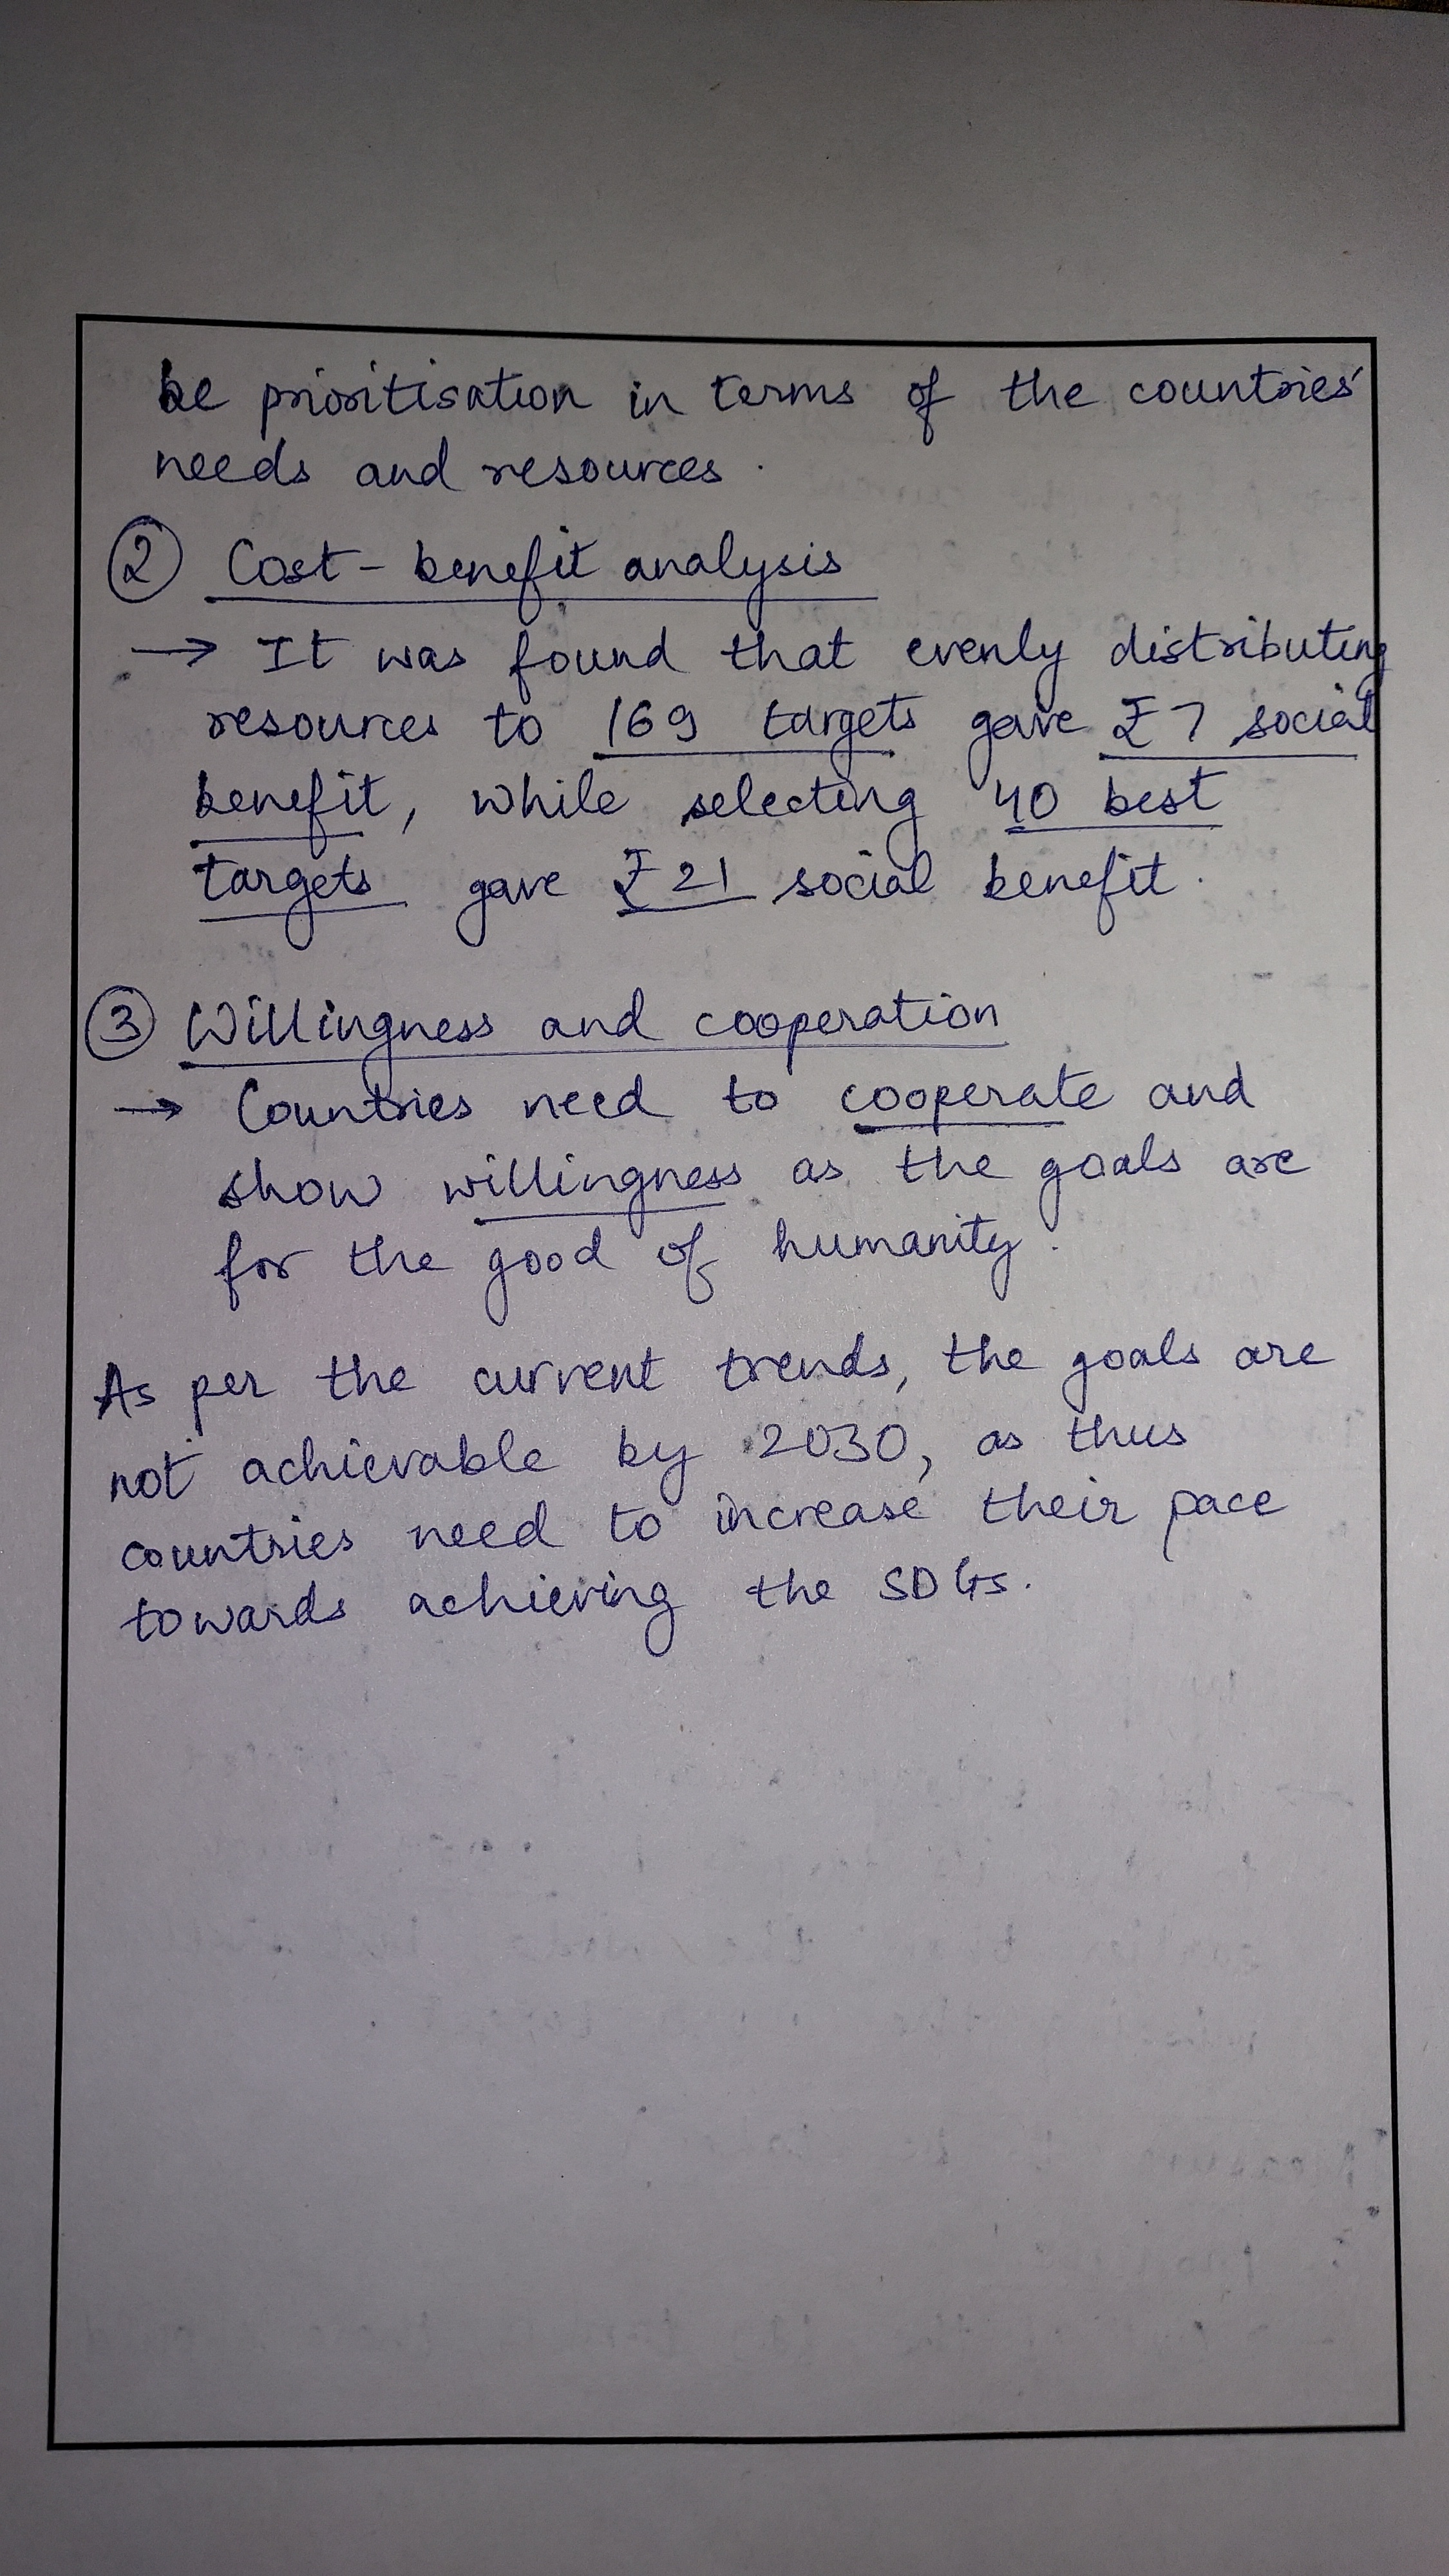 be prioritisation in terms of the countries'
needs and resources.
② Cost-benefit analysis
→ It was found that evenly distributing
resources to 169 targets gave ₹7 social
benefit, while selecting 40 best
targets gave ₹21 social benefit.
③ Willingness and cooperation
→ Countries need to cooperate and
show willingness as the goals are
for the good of humanity.
As per the current trends, the goals are
not achievable by 2030, as thus
countries need to increase their pace
towards achieving the SDGs.